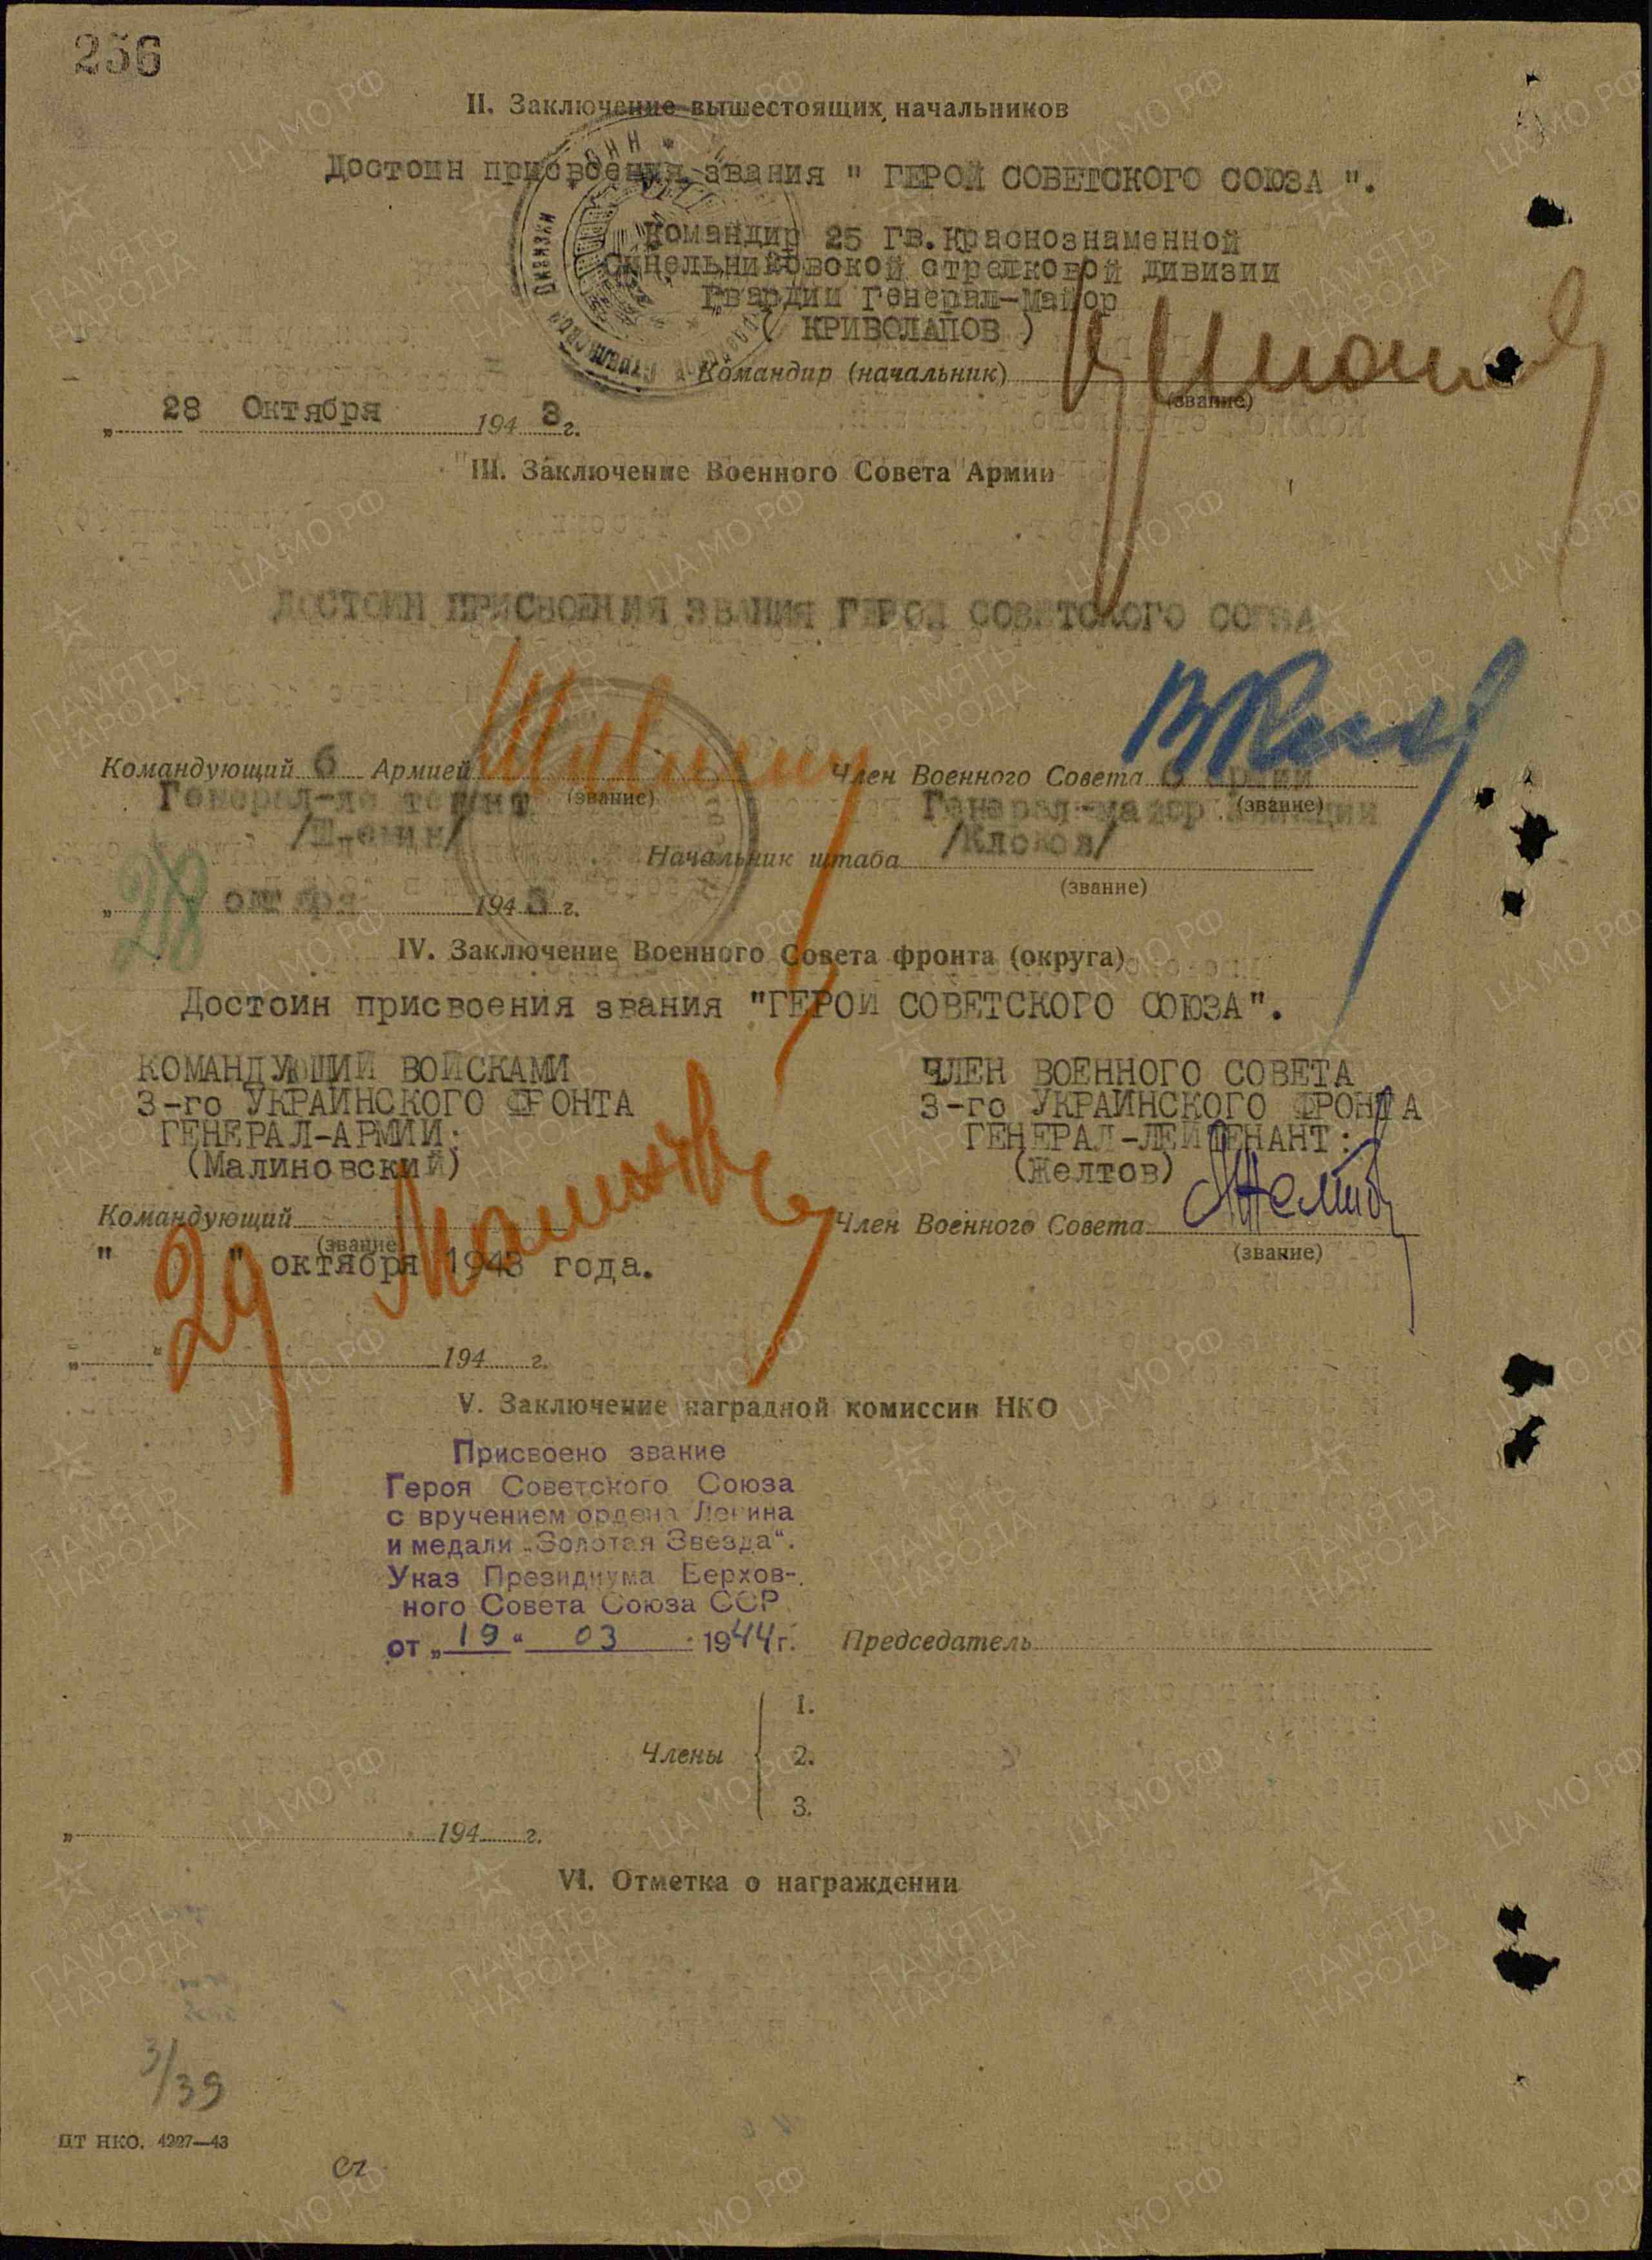 256
II. Заключение вышестоящих начальников
Достоин присвоения звания " ГЕРОЙ СОВЕТСКОГО СОЮЗА ".
Командир 25 Гв.Краснознаменной
Синельниковской стрелковой дивизии
Гвардии Генерал-Майор
( КРИВОЛАПОВ )
Командир (начальник)
(звание)
„ 28 Октября 1943 г.
III. Заключение Военного Совета Армии
ДОСТОИН ПРИСВОЕНИЯ ЗВАНИЯ ГЕРОЯ СОВЕТСКОГО СОЮЗА
Командующий 6 Армией
(звание)
Генерал-лейтенант
Член Военного Совета 6 армии
(звание)
Генерал-майор авиации
/Клоков/
Начальник штаба
(звание)
„ 28 октября 1943 г.
IV. Заключение Военного Совета фронта (округа)
Достоин присвоения звания "ГЕРОЙ СОВЕТСКОГО СОЮЗА".
КОМАНДУЮЩИЙ ВОЙСКАМИ
3-го УКРАИНСКОГО ФРОНТА
ГЕНЕРАЛ-АРМИИ:
(Малиновский)
ЧЛЕН ВОЕННОГО СОВЕТА
3-го УКРАИНСКОГО ФРОНТА
ГЕНЕРАЛ-ЛЕЙТЕНАНТ:
(Желтов)
Командующий
(звание)
Член Военного Совета
(звание)
" 29 " октября 1943 года.
„ “ 194 г.
V. Заключение наградной комиссии НКО
Присвоено звание
Героя Советского Союза
с вручением ордена Ленина
и медали „Золотая Звезда“.
Указ Президиума Верхов-
ного Совета Союза ССР
от „19“ 03 1944 г.
Председатель
Члены
1.
2.
3.
„ 194 г.
VI. Отметка о награждении
3/39
ЦТ НКО. 4227—43
ПАМЯТЬ НАРОДА
ЦА МО РФ